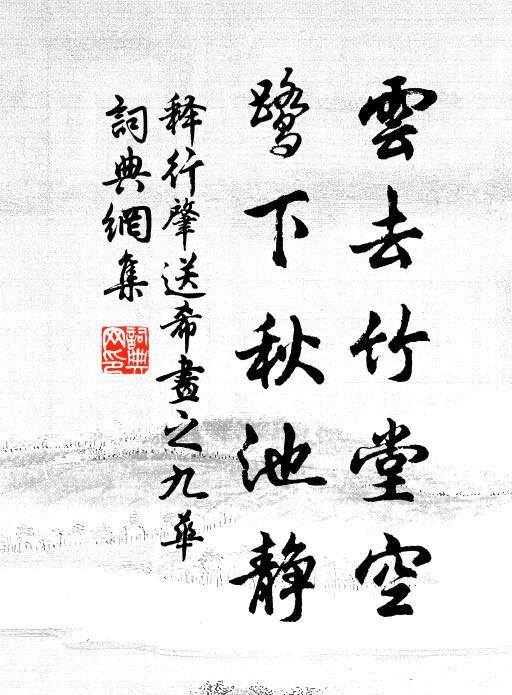 雲去竹堂空
鹭下秋池静
释行肇送希晝之九華
詞典網集
詞典
网印